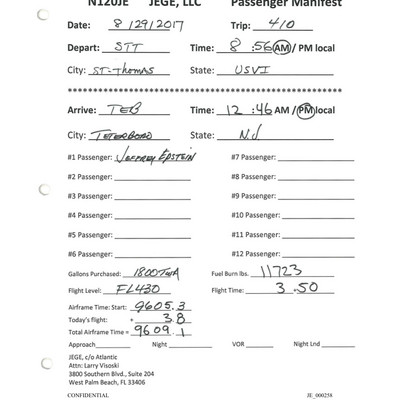 N120JE JEGE, LLC Passenger Manifest
Date: 8/29/2017 Trip: 410
Depart: STT Time: 8:56 AM / PM local
City: ST-Thomas State: USVI
Arrive: TEB Time: 12:46 AM / PM local
City: TETERBORO State: NJ
#1 Passenger: JEFFREY EPSTEIN #7 Passenger:
#2 Passenger: #8 Passenger:
#3 Passenger: #9 Passenger:
#4 Passenger: #10 Passenger:
#5 Passenger: #11 Passenger:
#6 Passenger: #12 Passenger:
Gallons Purchased: 1800 Fuel Burn lbs. 11723
Flight Level: FL430 Flight Time: 3.50
Airframe Time: Start: 9605.3
Today's flight: + 3.8
Total Airframe Time = 9609.1
Approach Night VOR Night Lnd
JEGE, c/o Atlantic
Attn: Larry Visoski
3800 Southern Blvd., Suite 204
West Palm Beach, FL 33406
CONFIDENTIAL JE_000258